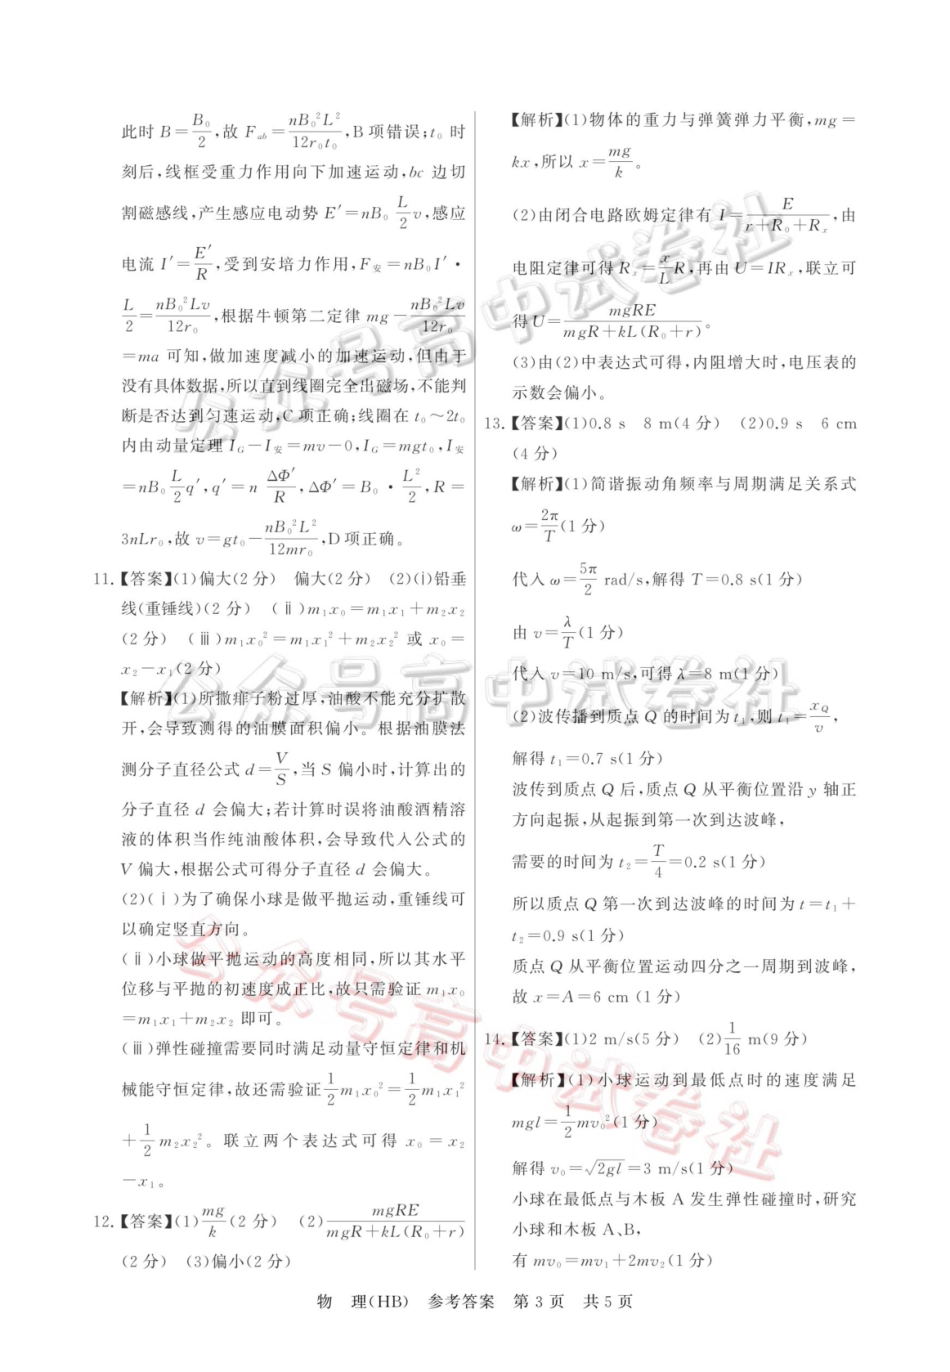 此时 B=B₀/2,故 F_ab=nB₀²L²/12r₀t₀,B 项错误;t₀ 时
刻后,线框受重力作用向下加速运动,bc 边切
割磁感线,产生感应电动势 E′=nB₀ L/2 v,感应
电流 I′=E′/R,受到安培力作用,F安=nB₀I′·
L/2=nB₀²Lv/12r₀,根据牛顿第二定律 mg-nB₀²Lv/12r₀
=ma 可知,做加速度减小的加速运动,但由于
没有具体数据,所以直到线圈完全出磁场,不能判
断是否达到匀速运动,C 项正确;线圈在 t₀~2t₀
内由动量定理 I_G-I安=mv-0,I_G=mgt₀,I安
=nB₀ L/2 q′,q′=n ΔΦ′/R,ΔΦ′=B₀·L²/2,R=
3nLr₀,故 v=gt₀-nB₀²L²/12mr₀,D 项正确。
11.【答案】(1)偏大(2 分) 偏大(2 分) (2)(ⅰ)铅垂
线(重锤线)(2 分) (ⅱ)m₁x₀=m₁x₁+m₂x₂
(2 分) (ⅲ)m₁x₀²=m₁x₁²+m₂x₂² 或 x₀=
x₂-x₁(2 分)
【解析】(1)所撒痱子粉过厚,油酸不能充分扩散
开,会导致测得的油膜面积偏小。根据油膜法
测分子直径公式 d=V/S,当 S 偏小时,计算出的
分子直径 d 会偏大;若计算时误将油酸酒精溶
液的体积当作纯油酸体积,会导致代入公式的
V 偏大,根据公式可得分子直径 d 会偏大。
(2)(ⅰ)为了确保小球是做平抛运动,重锤线可
以确定竖直方向。
(ⅱ)小球做平抛运动的高度相同,所以其水平
位移与平抛的初速度成正比,故只需验证 m₁x₀
=m₁x₁+m₂x₂ 即可。
(ⅲ)弹性碰撞需要同时满足动量守恒定律和机
械能守恒定律,故还需验证 1/2 m₁x₀²=1/2 m₁x₁²
+1/2 m₂x₂²。联立两个表达式可得 x₀=x₂
-x₁。
12.【答案】(1)mg/k(2 分) (2)mgRE/mgR+kL(R₀+r)
(2 分) (3)偏小(2 分)
【解析】(1)物体的重力与弹簧弹力平衡,mg=
kx,所以 x=mg/k。
(2)由闭合电路欧姆定律有 I=E/r+R₀+Rₓ,由
电阻定律可得 Rₓ=x/L R,再由 U=IRₓ,联立可
得 U=mgRE/mgR+kL(R₀+r)。
(3)由(2)中表达式可得,内阻增大时,电压表的
示数会偏小。
13.【答案】(1)0.8 s 8 m(4 分) (2)0.9 s 6 cm
(4 分)
【解析】(1)简谐振动角频率与周期满足关系式
ω=2π/T(1 分)
代入 ω=5π/2 rad/s,解得 T=0.8 s(1 分)
由 v=λ/T(1 分)
代入 v=10 m/s,可得 λ=8 m(1 分)
(2)波传播到质点 Q 的时间为 t₁,则 t₁=x_Q/v,
解得 t₁=0.7 s(1 分)
波传到质点 Q 后,质点 Q 从平衡位置沿 y 轴正
方向起振,从起振到第一次到达波峰,
需要的时间为 t₂=T/4=0.2 s(1 分)
所以质点 Q 第一次到达波峰的时间为 t=t₁+
t₂=0.9 s(1 分)
质点 Q 从平衡位置运动四分之一周期到波峰,
故 x=A=6 cm (1 分)
14.【答案】(1)2 m/s(5 分) (2)1/16 m(9 分)
【解析】(1)小球运动到最低点时的速度满足
mgl=1/2 mv₀²(1 分)
解得 v₀=√2gl=3 m/s(1 分)
小球在最低点与木板 A 发生弹性碰撞时,研究
小球和木板 A、B,
有 mv₀=mv₁+2mv₂(1 分)
物 理(HB) 参考答案 第 3 页 共 5 页
公众号高中试卷社
公众号高中试卷社
公众号高中试卷社